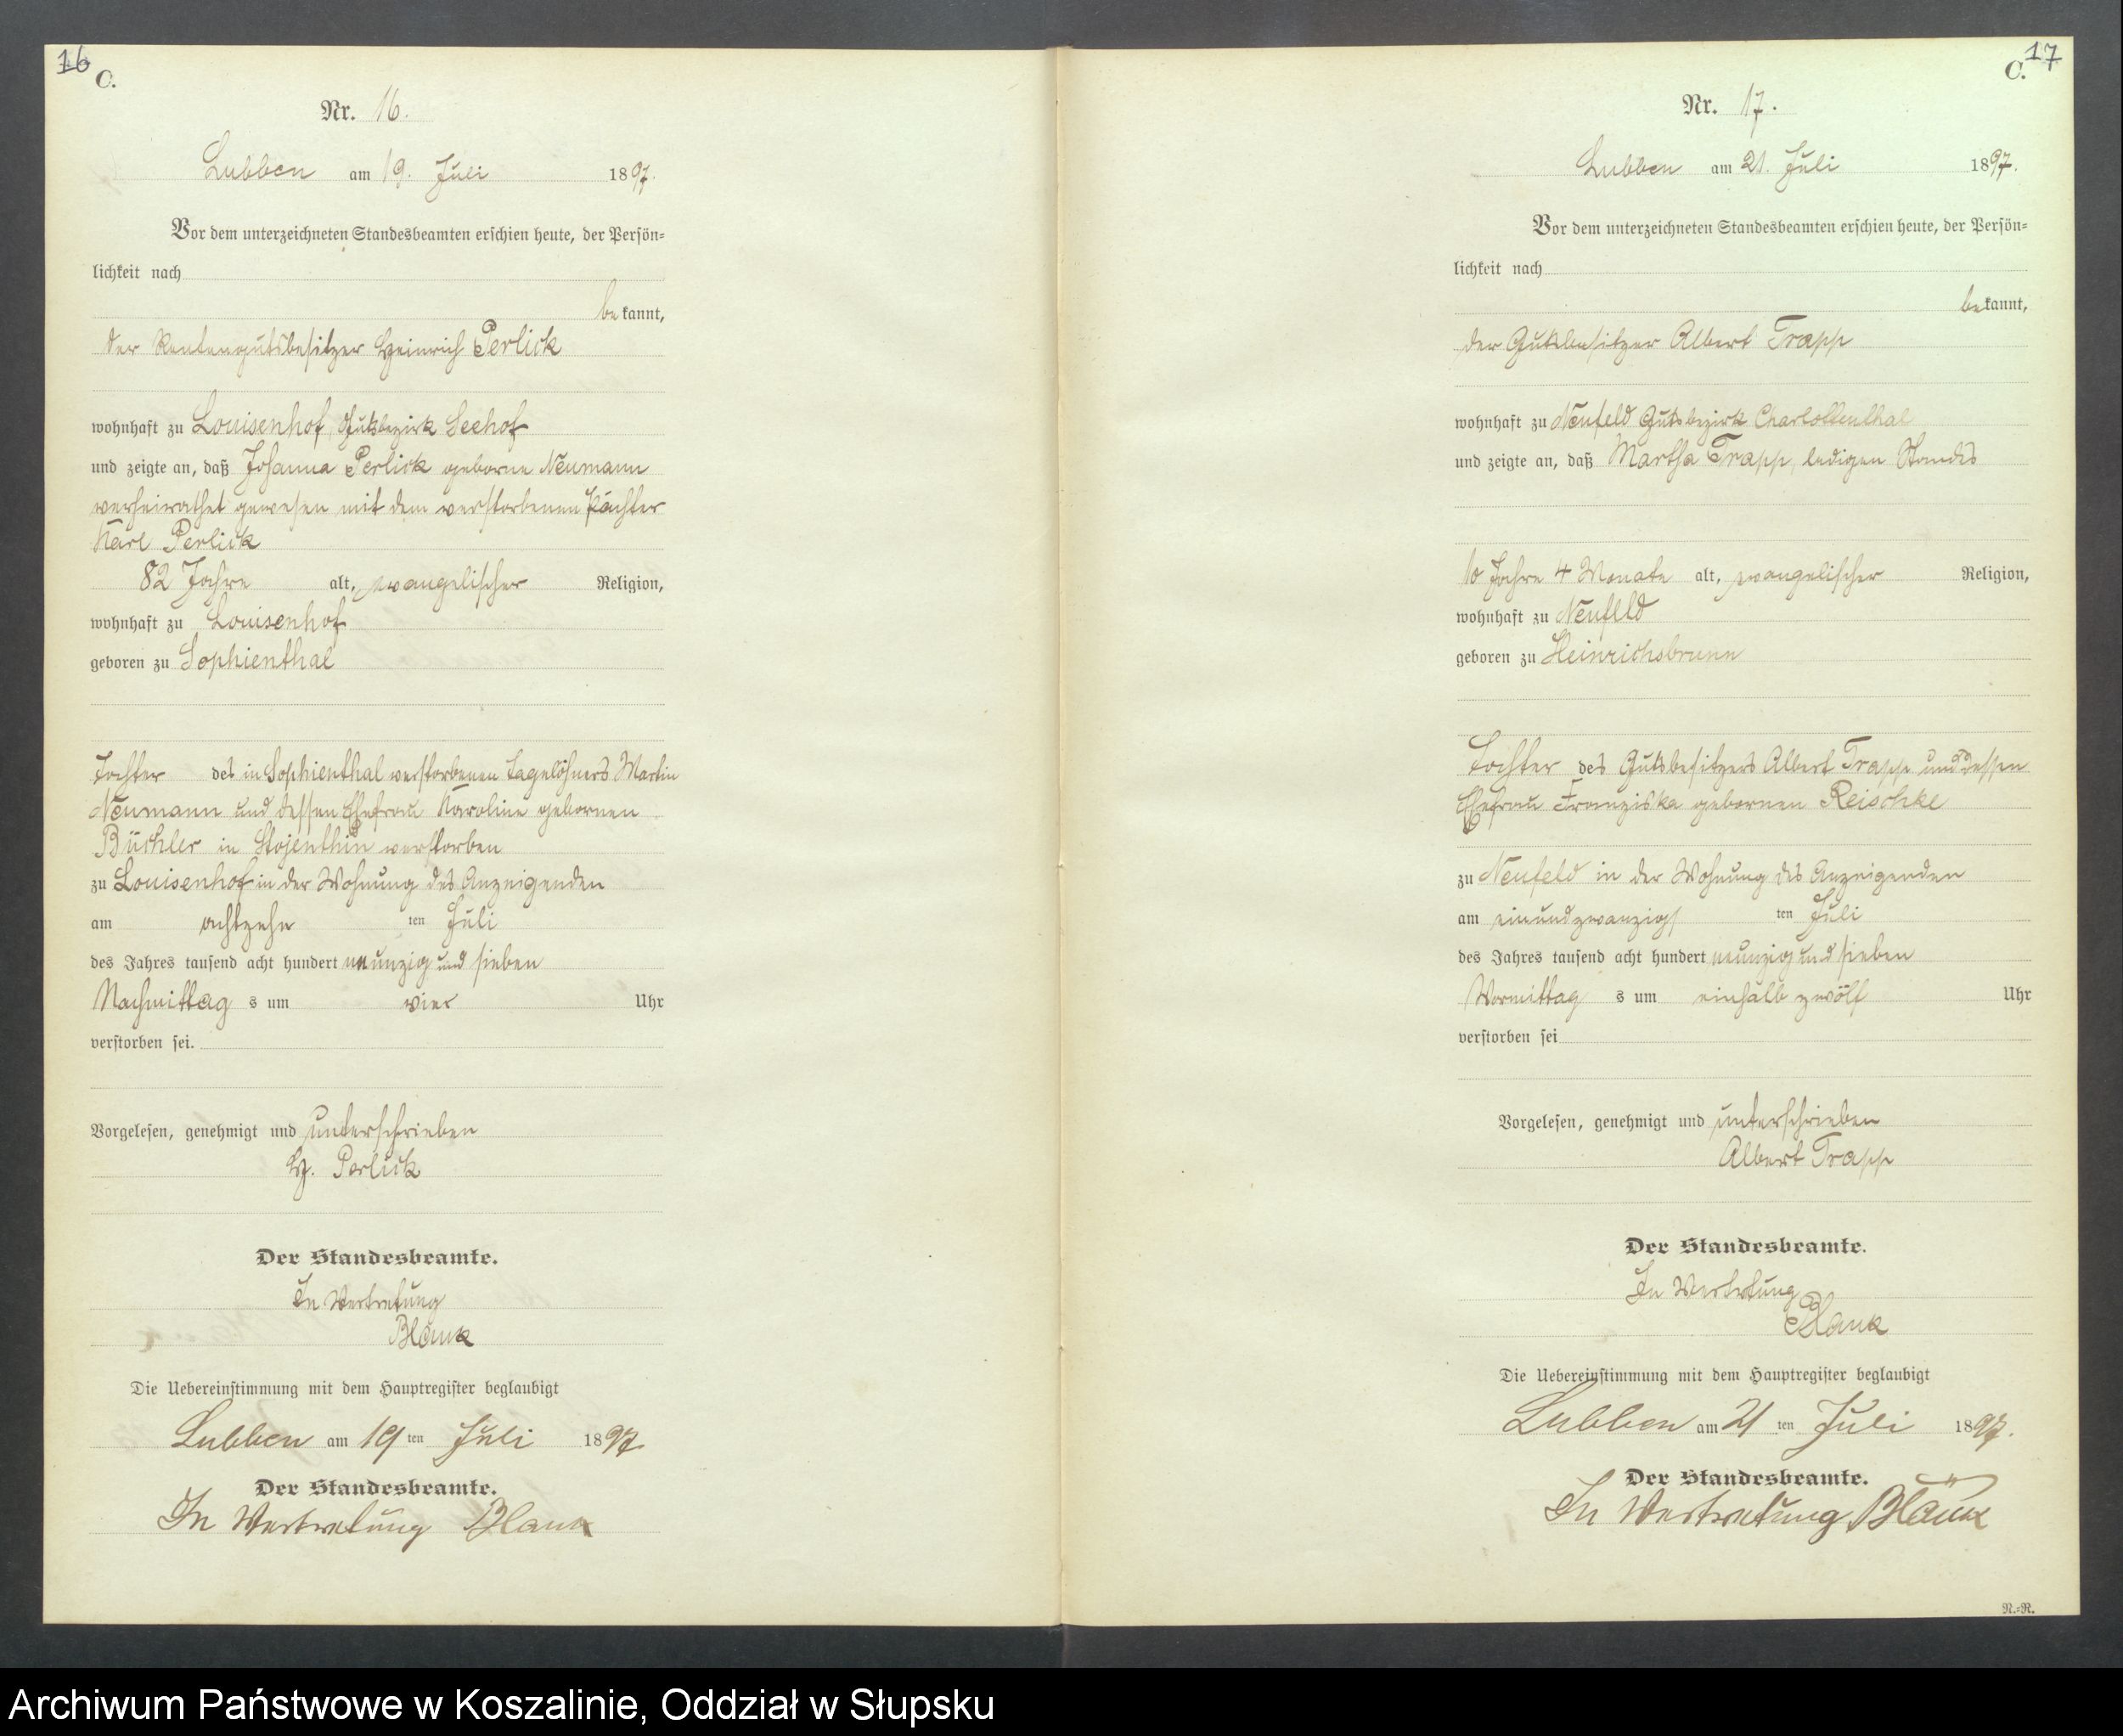 16
C.
Nr. 16.
Lubben am 19. Juli 1897.
Vor dem unterzeichneten Standesbeamten erschien heute, der Persön-
lichkeit nach
bekannt,
der Rentengutsbesitzer Heinrich Perlick
wohnhaft zu Louisenhof, Gutsbezirk Seehof
und zeigte an, daß Johanna Perlick geborne Neumann
verheirathet gewesen mit dem verstorbenen Pächter
Karl Perlick
82 Jahre alt, evangelischer Religion,
wohnhaft zu Louisenhof
geboren zu Sophienthal
Tochter des in Sophienthal verstorbenen Tagelöhners Martin
Neumann und dessen Ehefrau Karoline gebornen
Büchler in Stojenthin verstorben
zu Louisenhof in der Wohnung des Anzeigenden
am achtzehn ten Juli
des Jahres tausend acht hundert neunzig und sieben
Nachmittag s um vier Uhr
verstorben sei.
Vorgelesen, genehmigt und unterschrieben
H. Perlick
Der Standesbeamte.
In Vertretung
Blank
Die Uebereinstimmung mit dem Hauptregister beglaubigt
Lubben am 19 ten Juli 1897
Der Standesbeamte.
In Vertretung Blank
17
C.
Nr. 17.
Lubben am 21. Juli 1897.
Vor dem unterzeichneten Standesbeamten erschien heute, der Persön-
lichkeit nach
bekannt,
der Gutsbesitzer Albert Trapp
wohnhaft zu Neufeld Gutsbezirk Charlottenthal
und zeigte an, daß Martha Trapp, ledigen Standes
10 Jahre 4 Monate alt, evangelischer Religion,
wohnhaft zu Neufeld
geboren zu Heinrichsbrunn
Tochter des Gutsbesitzers Albert Trapp und dessen
Ehefrau Franziska gebornen Reischke
zu Neufeld in der Wohnung des Anzeigenden
am einundzwanzigs ten Juli
des Jahres tausend acht hundert neunzig und sieben
Vormittag s um einhalb zwölf Uhr
verstorben sei
Vorgelesen, genehmigt und unterschrieben
Albert Trapp
Der Standesbeamte.
In Vertretung
Blank
Die Uebereinstimmung mit dem Hauptregister beglaubigt
Lubben am 21 ten Juli 1897.
Der Standesbeamte.
In Vertretung Blank
N.=R.
Archiwum Państwowe w Koszalinie, Oddział w Słupsku